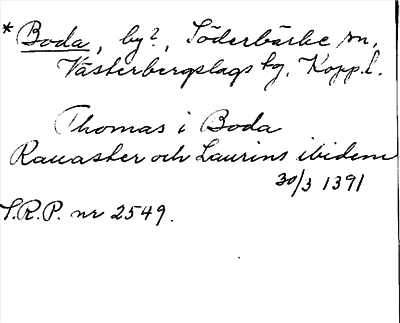 * Boda, by?, Söderbärke sn,
Västerbergslags hg, Kopp.l.
Thomas i Boda
Rauasker och Laurins ibidem
30/3 1391
S.R.P. nr 2549.